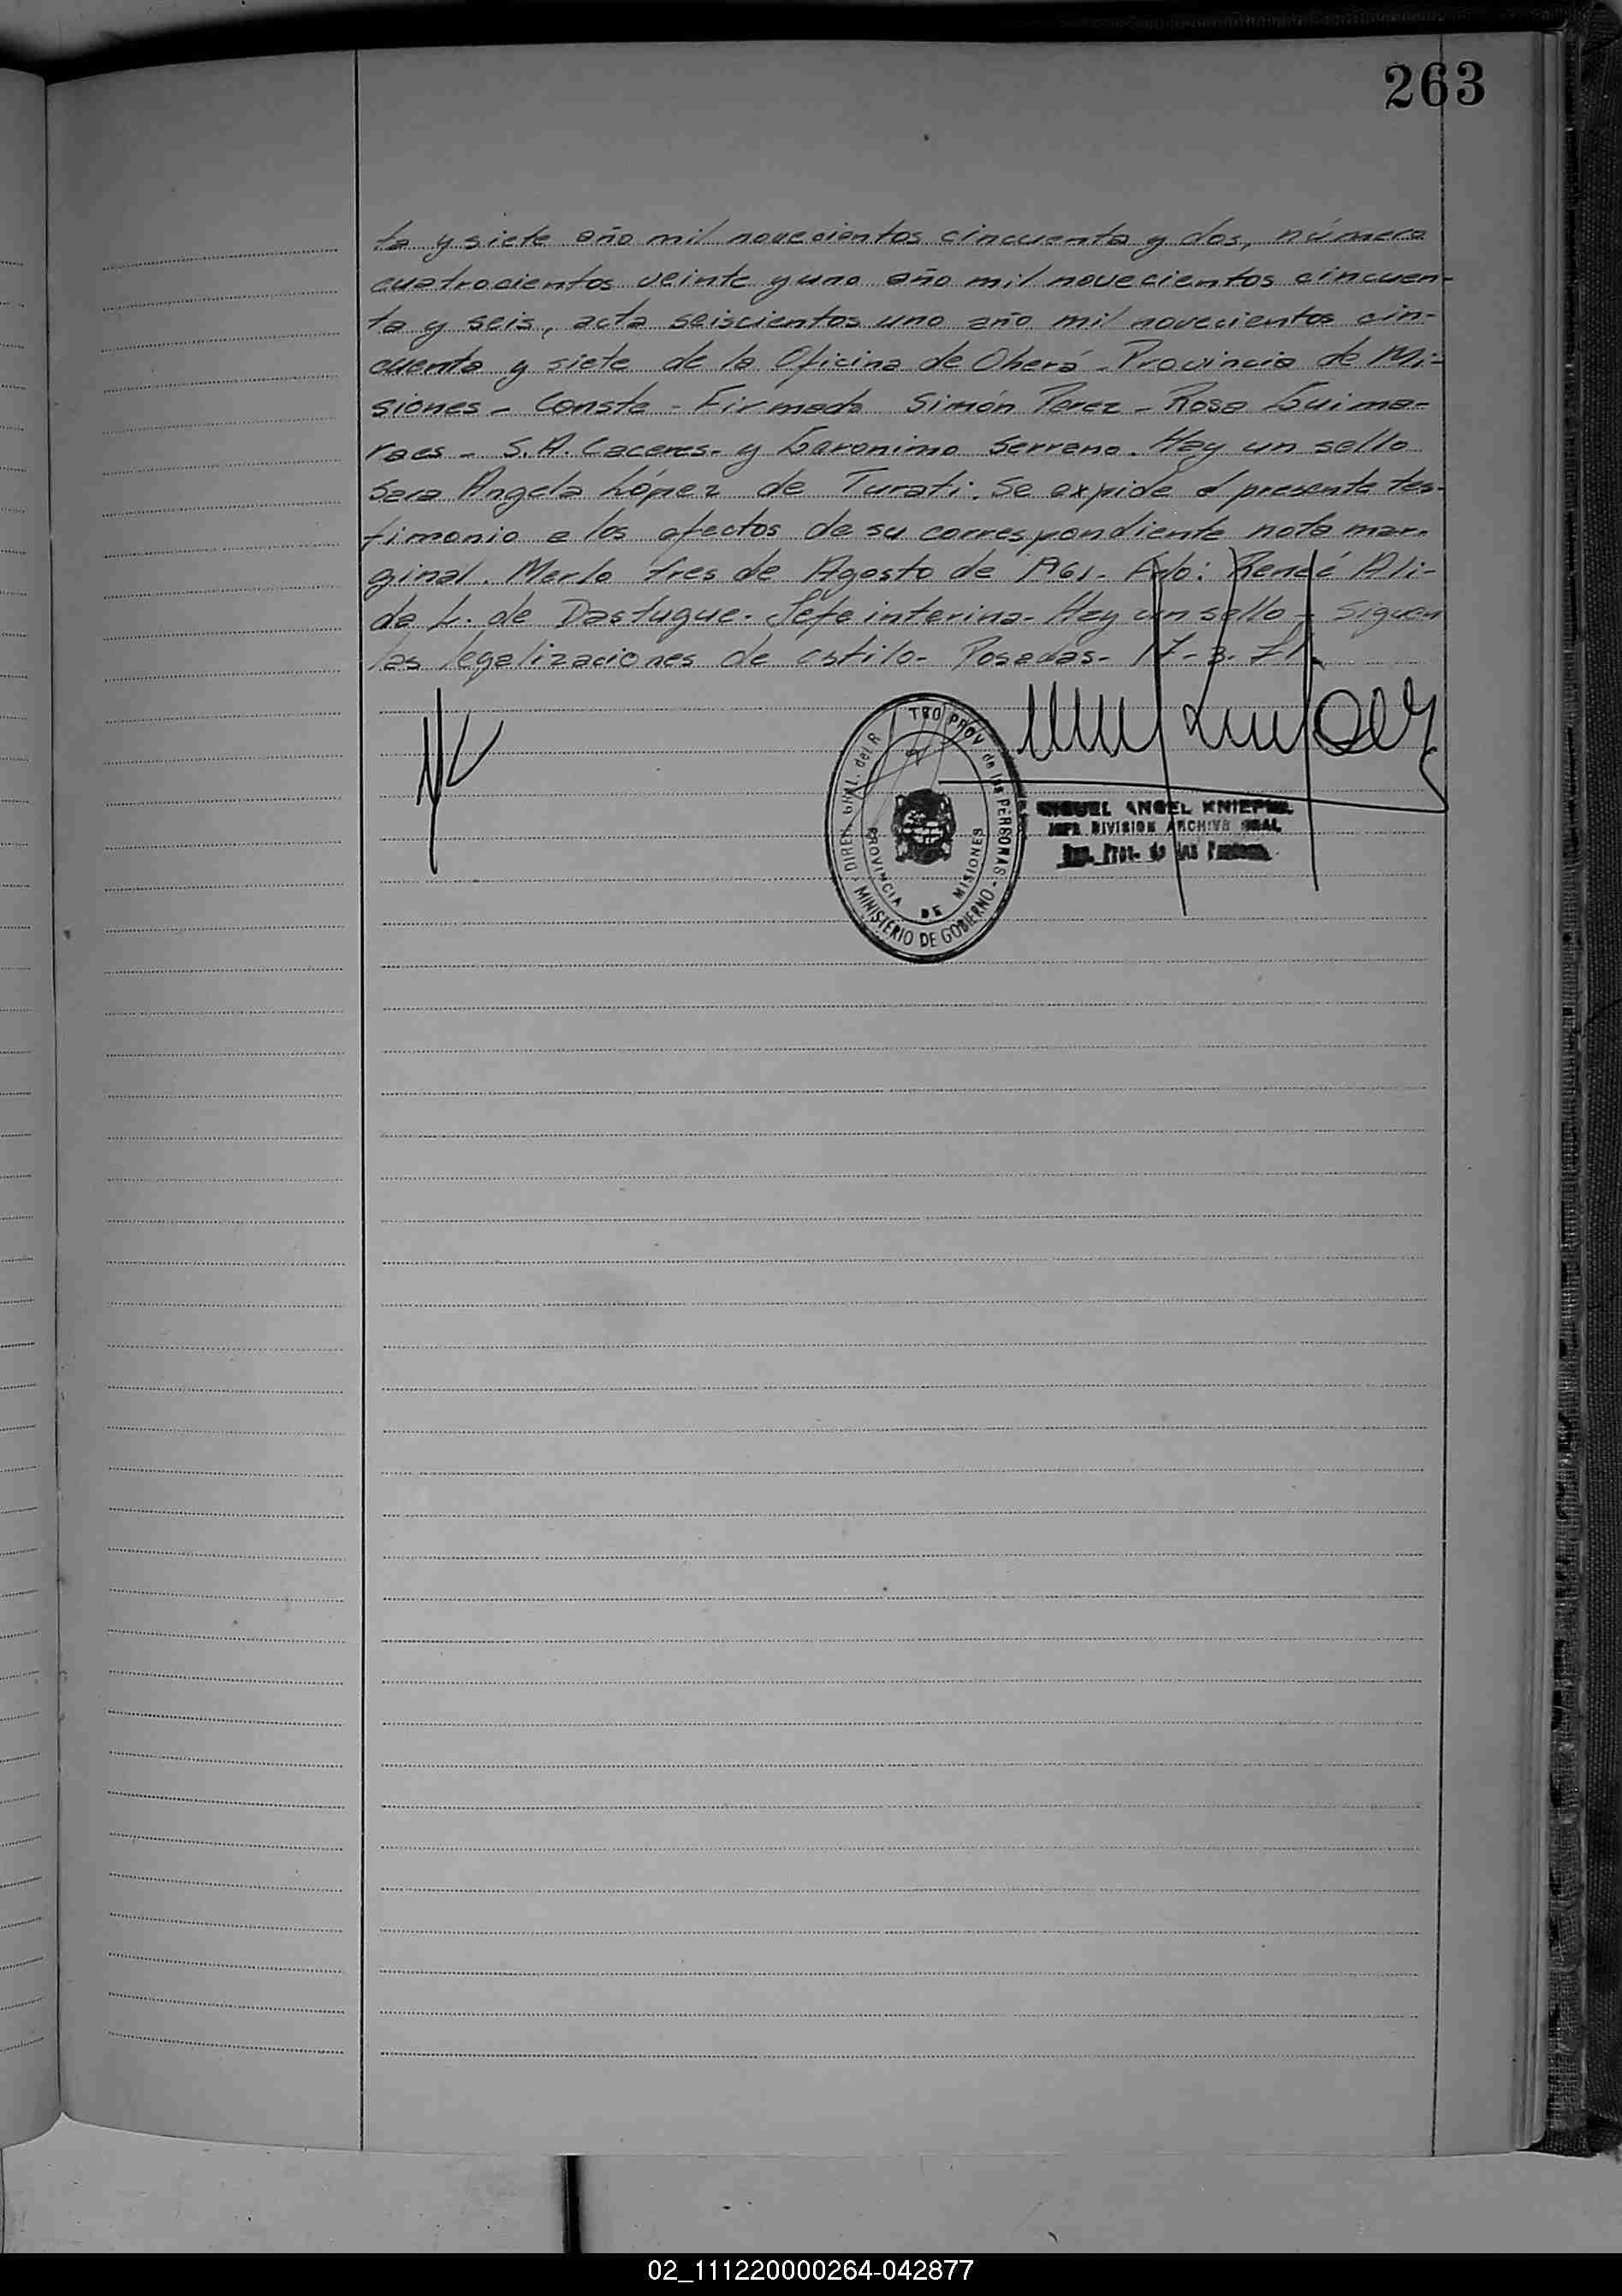 263
ta y siete año mil novecientos cincuenta y dos, número
cuatrocientos veinte y uno año mil novecientos cincuen-
ta y seis, acta seiscientos uno año mil novecientos cin-
cuenta y siete de la Oficina de Oberá - Provincia de Mi-
siones - Conste - Firmado Simón Perez - Rosa Guima-
raes - S.A. Caceres - y Geronimo Serrano. Hay un sello
Sara Angela López de Turati. Se expide el presente tes-
timonio a los efectos de su correspondiente nota mar-
ginal. Merlo tres de Agosto de 1961 - Fdo: Reneé Ali-
da L. de Dastugue. Jefe interina - Hay un sello - Siguen
las legalizaciones de estilo - Posadas - 17-3-71.
DIREC. GRAL. del R TRO PROV de las PERSONAS
PROVINCIA DE MISIONES
MINISTERIO DE GOBIERNO
MIGUEL ANGEL
JEFE DIVISION ARCHIVO GRAL.
Prov. de las Personas
02_111220000264-042877